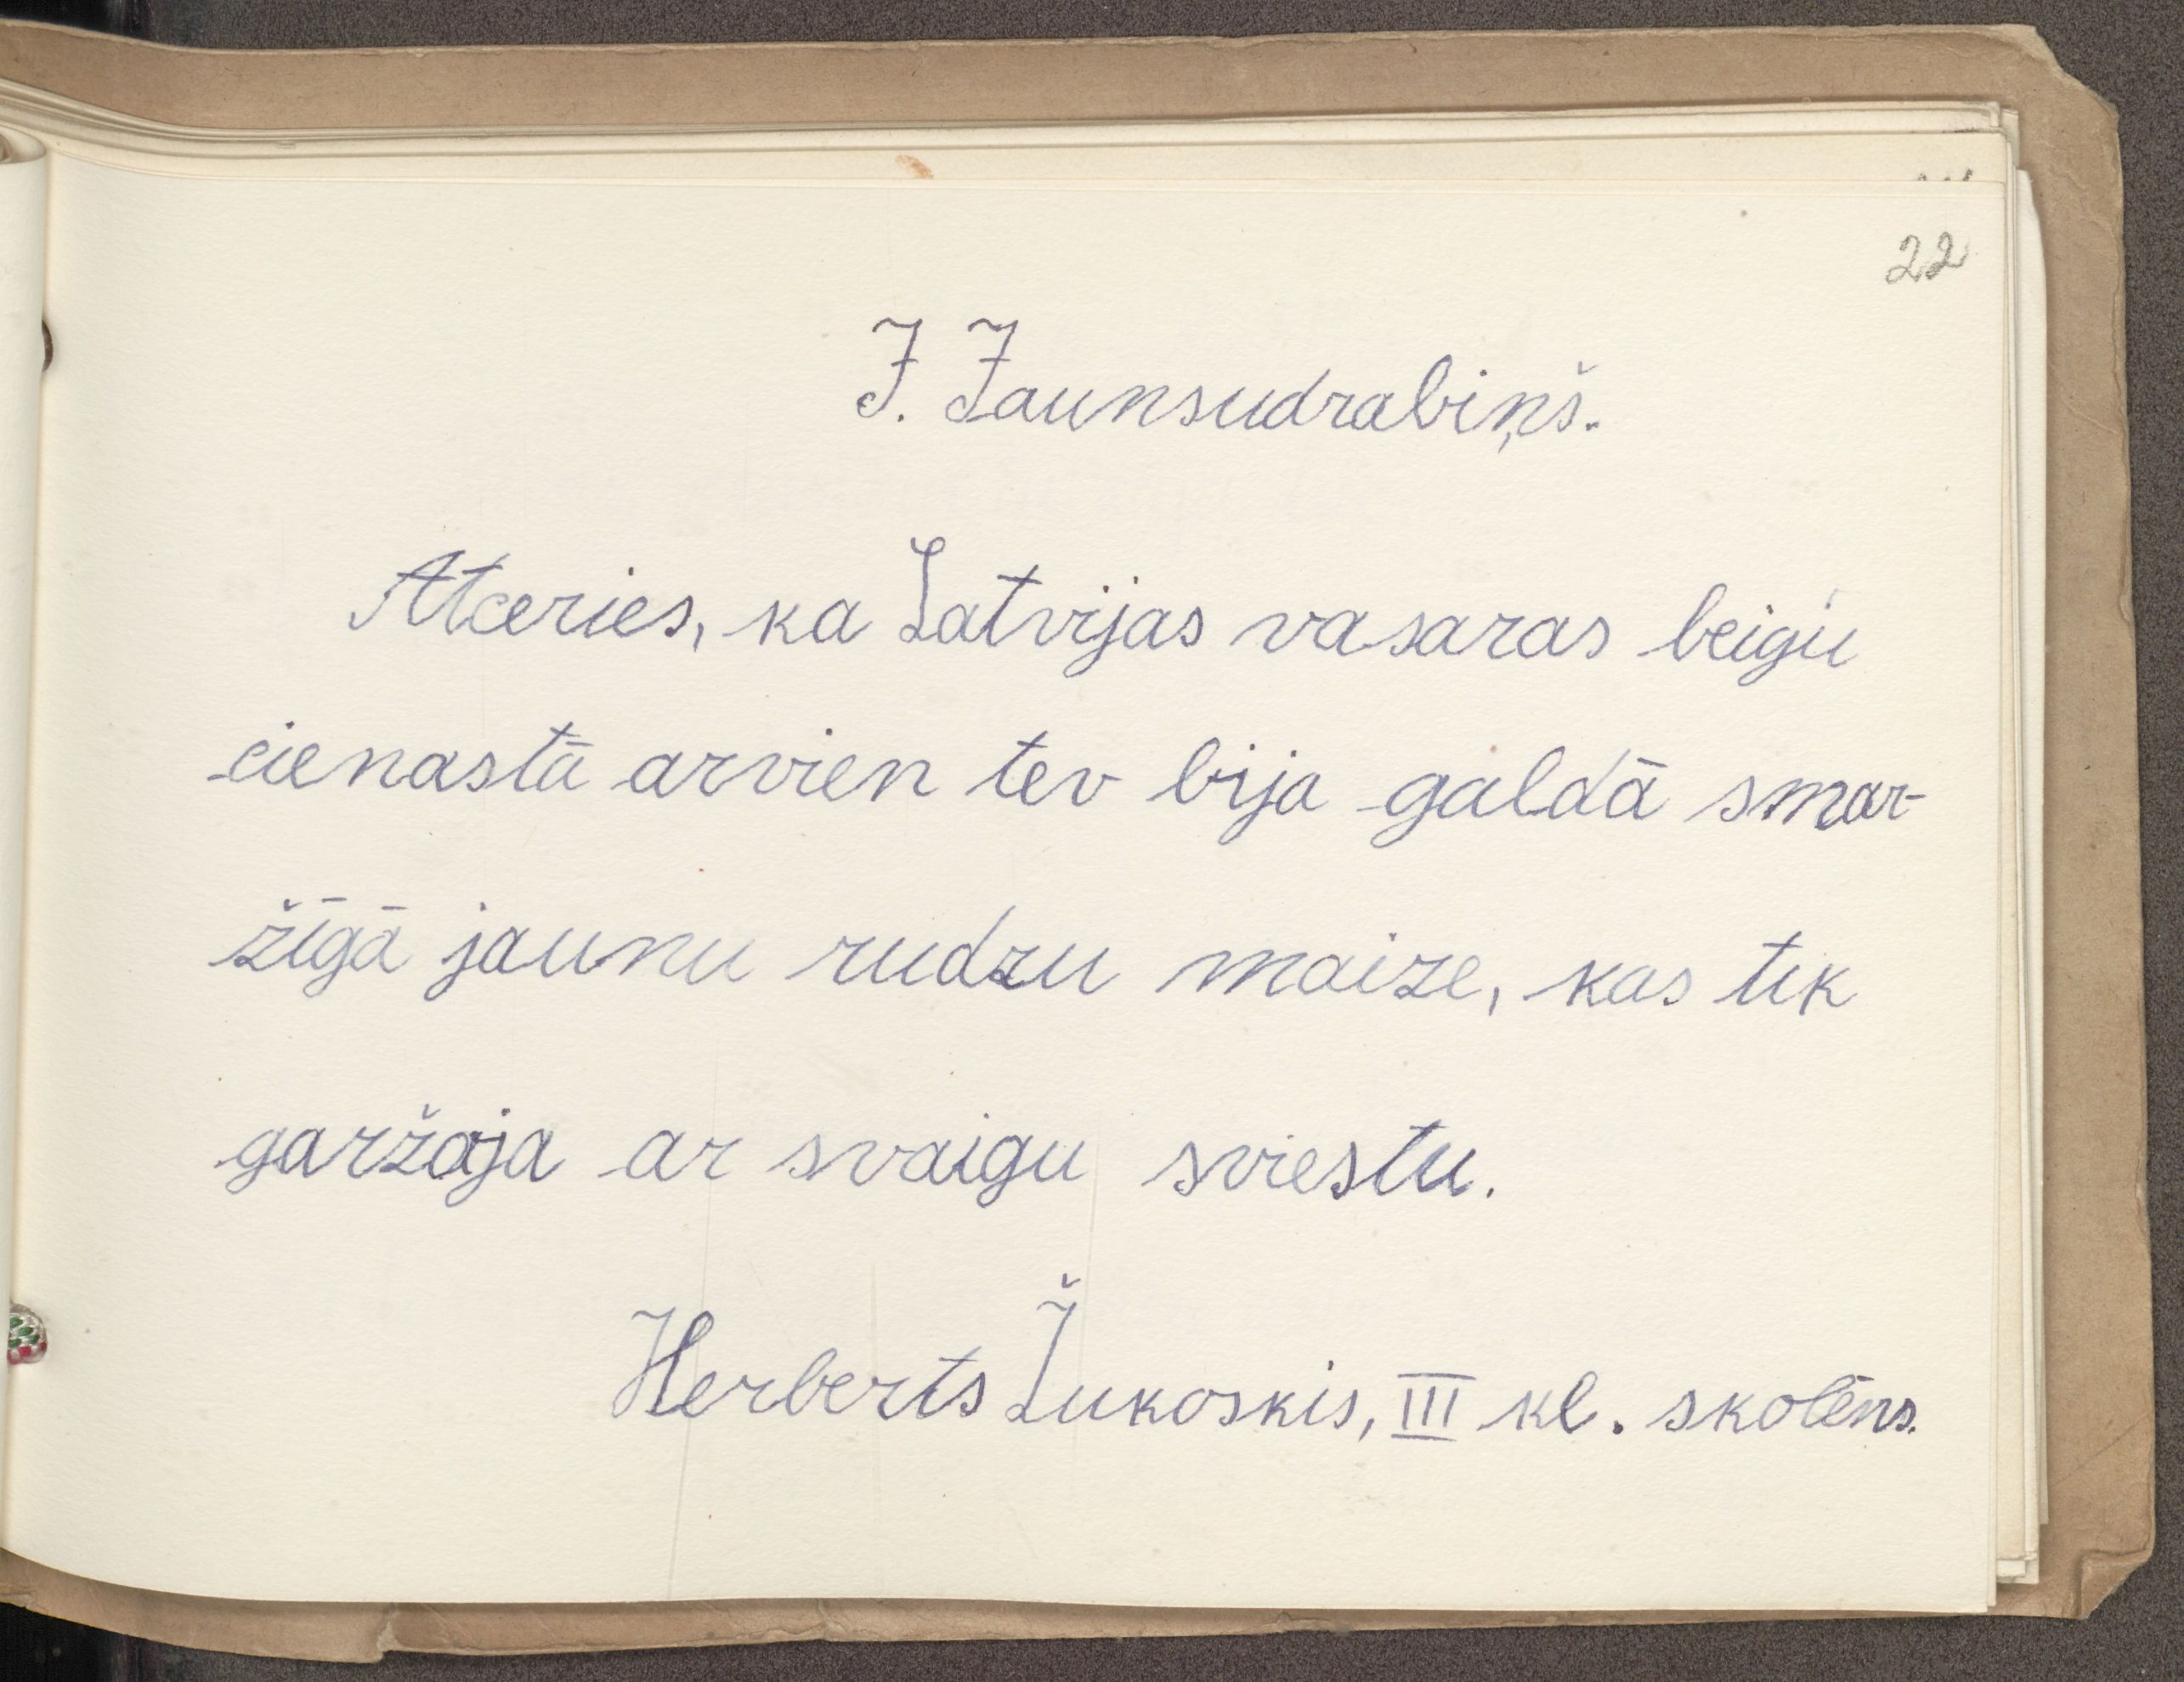 22
J. Jaunsudrabiņš.
Atceries, ka Latvijas vasaras beigu
cienastā arvien tev bija galdā smar-
žīgā jaunu rudzu maize, kas tik
garžoja ar svaigu sviestu.
Herberts Žukoskis, III kl. skolēns.